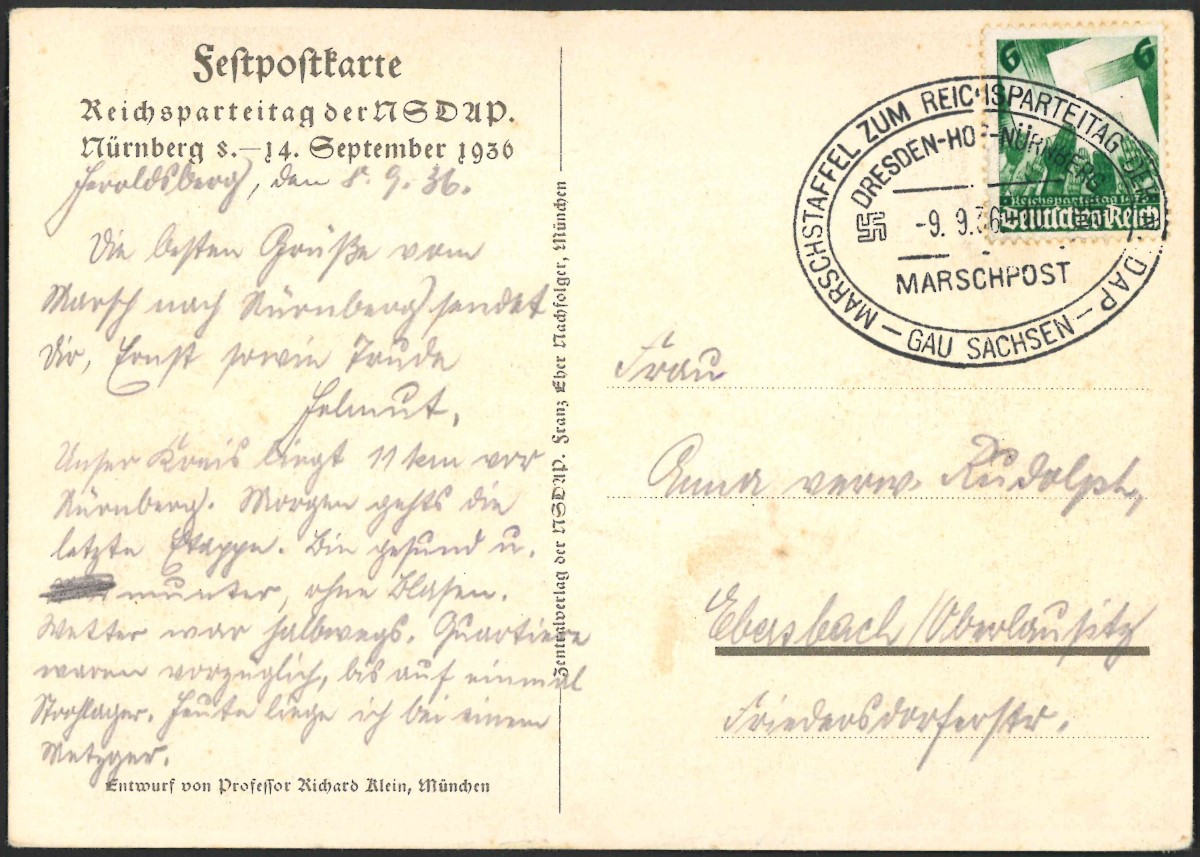 Festpostkarte
Reichsparteitag der NSDAP.
Nürnberg 8.–14. September 1936
Heroldsberg, den 8. 9. 36.
Die besten Grüße vom
Marsch nach Nürnberg sendet
Dir, Ernst sowie Trude
Helmut.
Unser Kreis liegt 11 km vor
Nürnberg. Morgen gehts die
letzte Etappe. Bin gesund u.
munter, ohne Blasen.
Wetter war halbwegs. Quartiere
waren vorzüglich, bis auf einmal
Strohlager. Heute liege ich bei einem
Metzger.
Entwurf von Professor Richard Klein, München
Zentralverlag der NSDAP. Franz Eher Nachfolger, München
6 6
Reichsparteitag 1936
Deutsches Reich
MARSCHSTAFFEL ZUM REICHSPARTEITAG DER NSDAP – GAU SACHSEN –
DRESDEN-HOF-NÜRNBERG
-9. 9.36
MARSCHPOST
Frau
Anna verw. Rudolph,
Ebersbach/Oberlausitz
Friedersdorferstr.